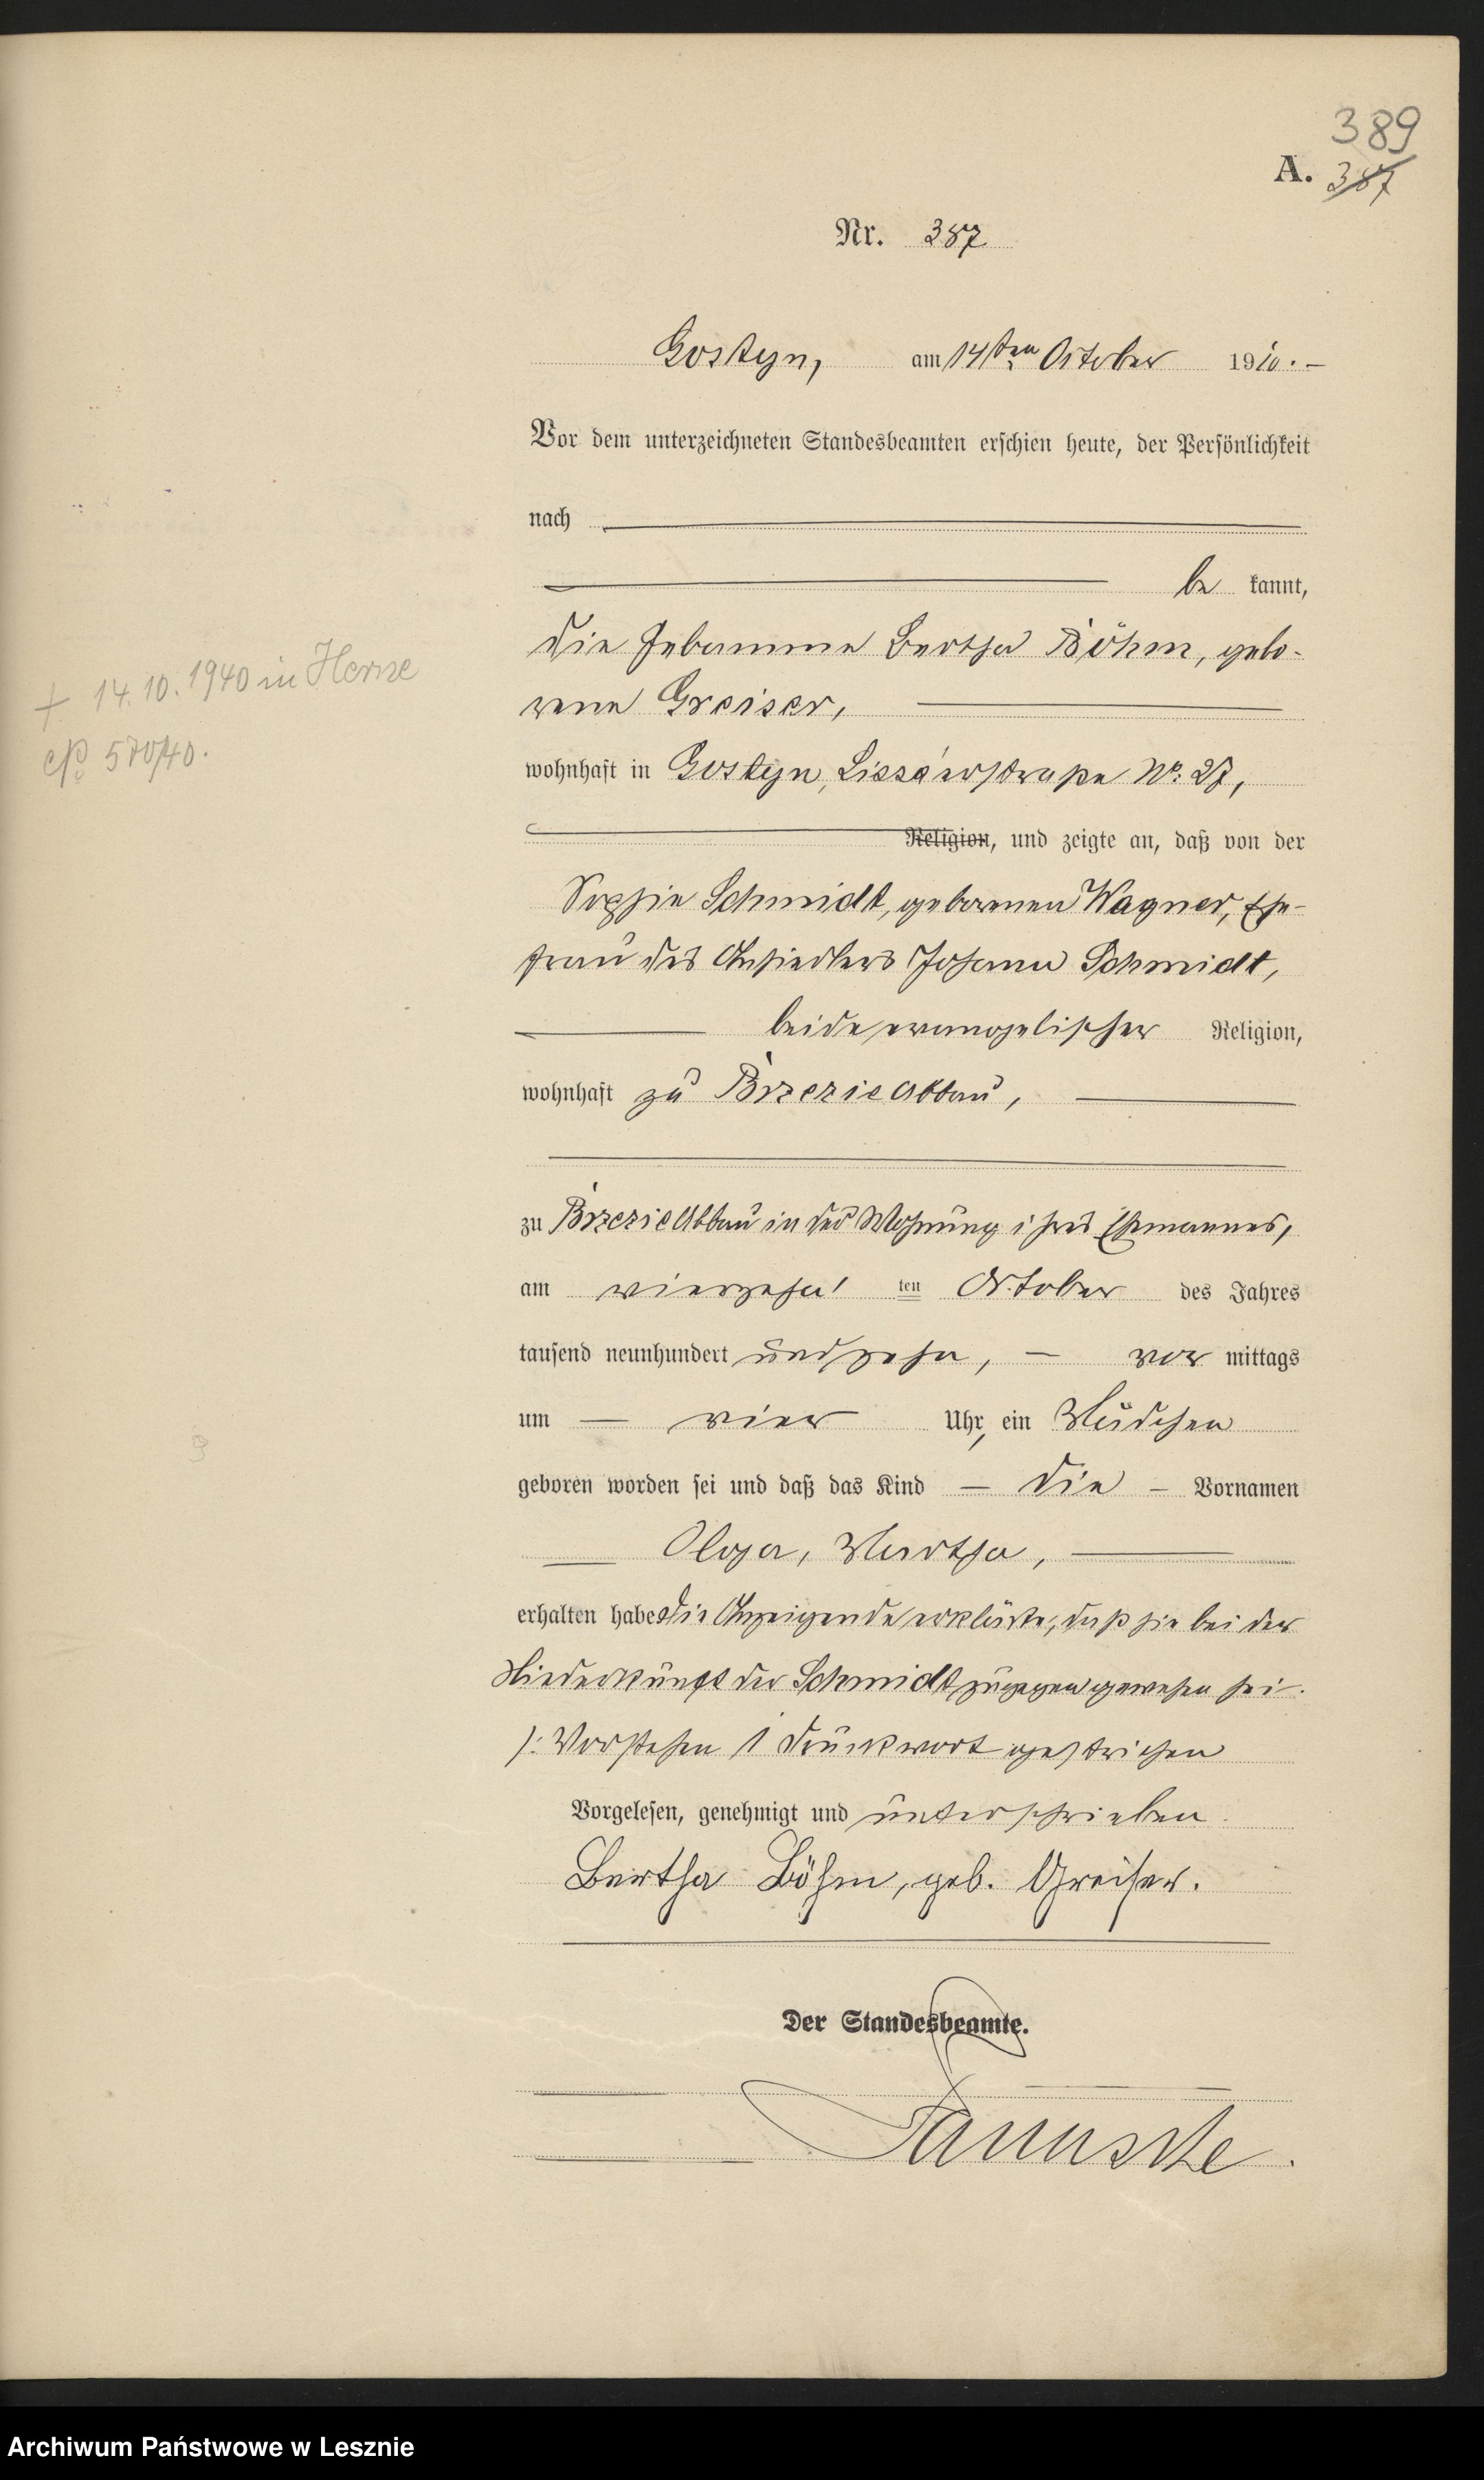 389
A. 387
Nr. 387
Gostyn, am 14ten October 1910.-
Vor dem unterzeichneten Standesbeamten erschien heute, der Persönlichkeit
nach
be kannt,
die Hebamme Bertha Böhm, gebo-
rene Greiser,
+ 14.10.1940 in Herne
No 570/40.
wohnhaft in Gostyn, Lissaerstraße No: 27,
Religion, und zeigte an, daß von der
Sophie Schmidt, geborenen Wagner, Ehe-
frau des Ansiedlers Johann Schmidt,
beide evangelischer Religion,
wohnhaft zu Brzezie Abbau,
zu Brzezie Abbau in der Wohnung ihres Ehemannes,
am vierzehn ten October des Jahres
tausend neunhundert und zehn, – vor mittags
um — vier Uhr, ein Mädchen
geboren worden sei und daß das Kind — die – Vornamen
Olga, Martha,
erhalten habe. Die Anzeigende erklärte, daß sie bei der
Niederkunft der Schmidt zugegen gewesen sei.
/: Vorstehen 1 Druckwort gestrichen
Vorgelesen, genehmigt und unterschrieben.
Bertha Böhm, geb. Greiser.
Der Standesbeamte.
Archiwum Państwowe w Lesznie